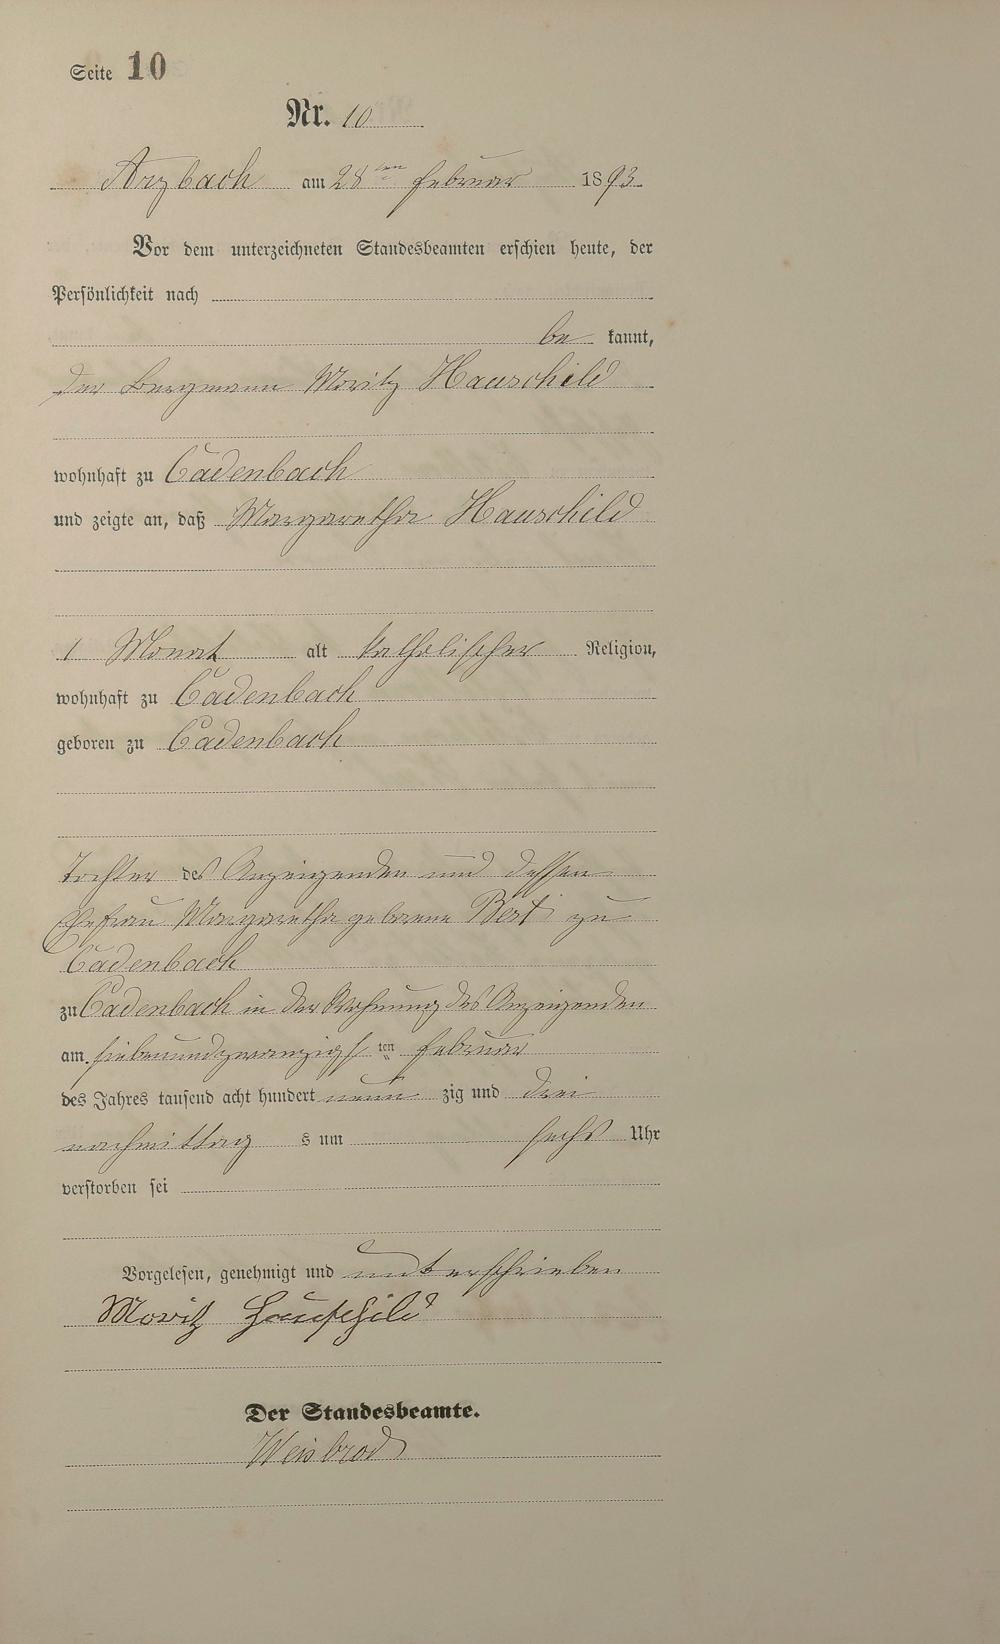 Seite 10
Nr. 10
Arzbach am 28ten Februar 1893
Vor dem unterzeichneten Standesbeamten erschien heute, der
Persönlichkeit nach
be kannt,
der Bergmann Moritz Hauschild
wohnhaft zu Cadenbach
und zeigte an, daß Margaretha Hauschild
1 Monat alt katholischer Religion,
wohnhaft zu Cadenbach
geboren zu Cadenbach
Tochter des Anzeigenden und dessen
Ehefrau Margaretha geborene zu
Cadenbach
zu Cadenbach in der Wohnung des Anzeigenden
am siebenundzwanzigsten Februar
des Jahres tausend acht hundert neun zig und drei
nachmittag s um sechs Uhr
verstorben sei
Vorgelesen, genehmigt und unterschrieben
Moritz Hauschild
Der Standesbeamte.
Weisbrod